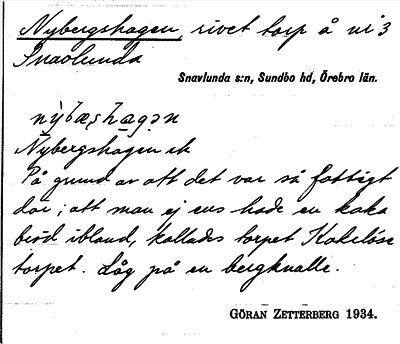 Nybergshagen, rivet torp å nr 3
Snavlunda
Snavlunda s:n, Sundbo hd, Örebro län.
nỳbæʂhagən
Nybergshagen
På grund av att det var så fattigt
där; att man ej ens hade en kaka
bröd ibland, kallades torpet Kakelösa
torpet. Låg på en bergknalle.
GÖRAN ZETTERBERG 1934.